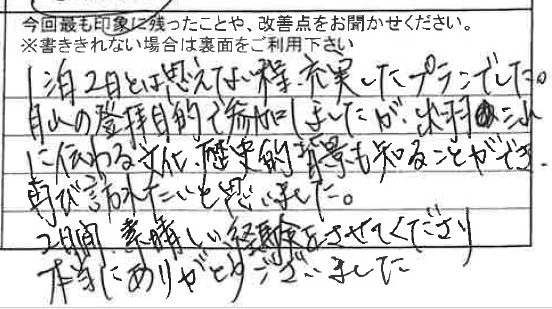 今回最も印象に残ったことや、改善点をお聞かせください。
※書ききれない場合は裏面をご利用下さい
1泊2日とは思えない程、充実したプランでした。
月山の登拝目的で参加しましたが、出羽
に伝わる文化、歴史的背景も知ることができ、
再び訪れたいと思いました。
2日間、素晴しい経験をさせてくださり
本当にありがとうございました